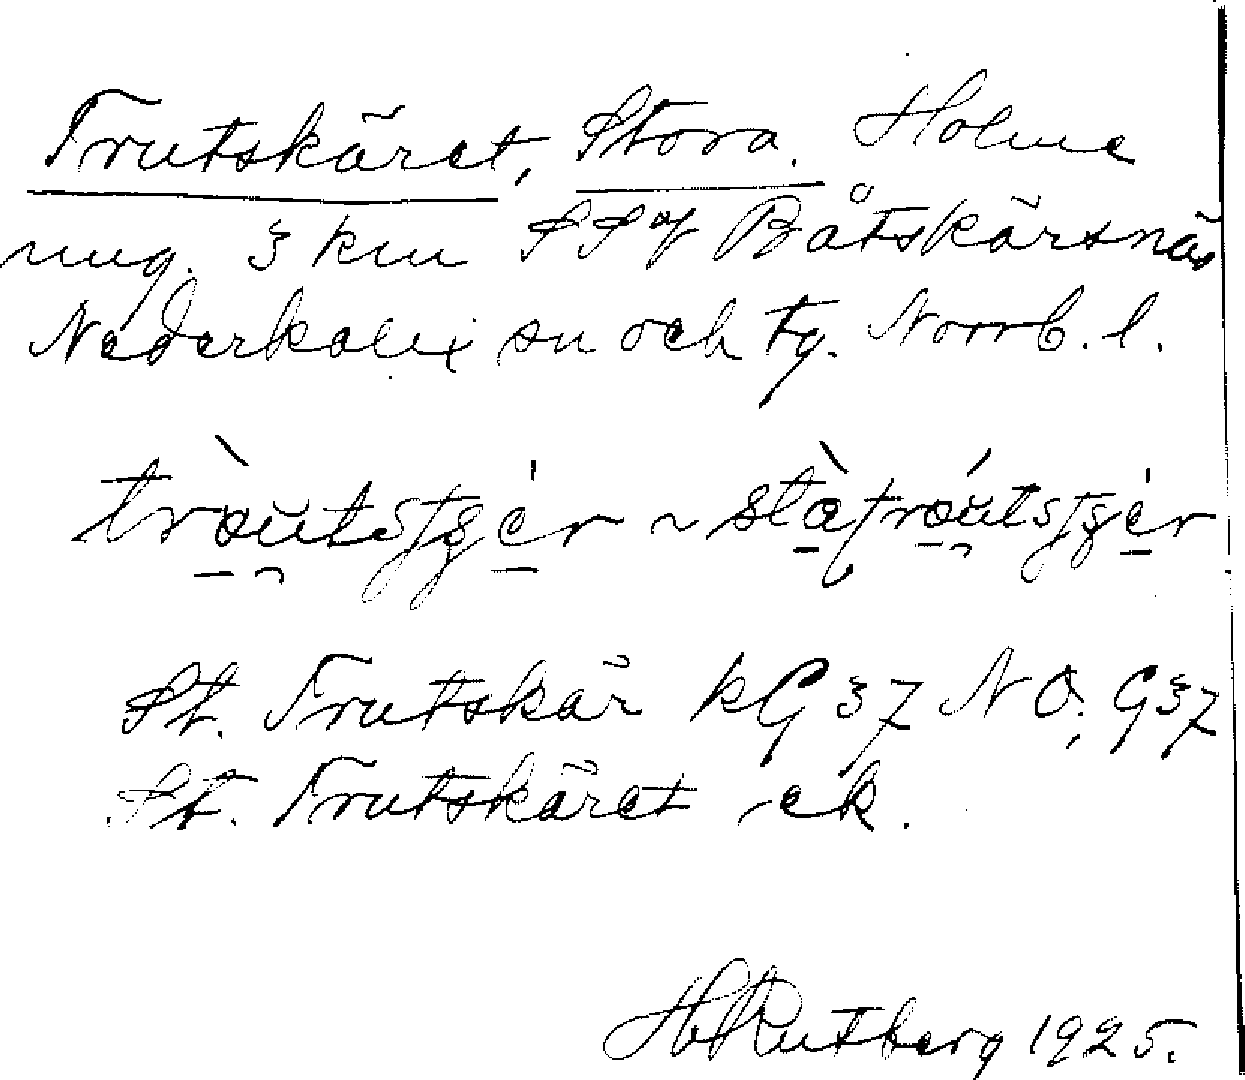 Trutskäret, Stora. Holme
ung. 3 km SSV Båtskärsnäs
Nederkalix sn och tg. Norrb. l.
St. Trutskär kG 37 NO; G 37
St. Trutskäret ek.
H Rutberg 1925.